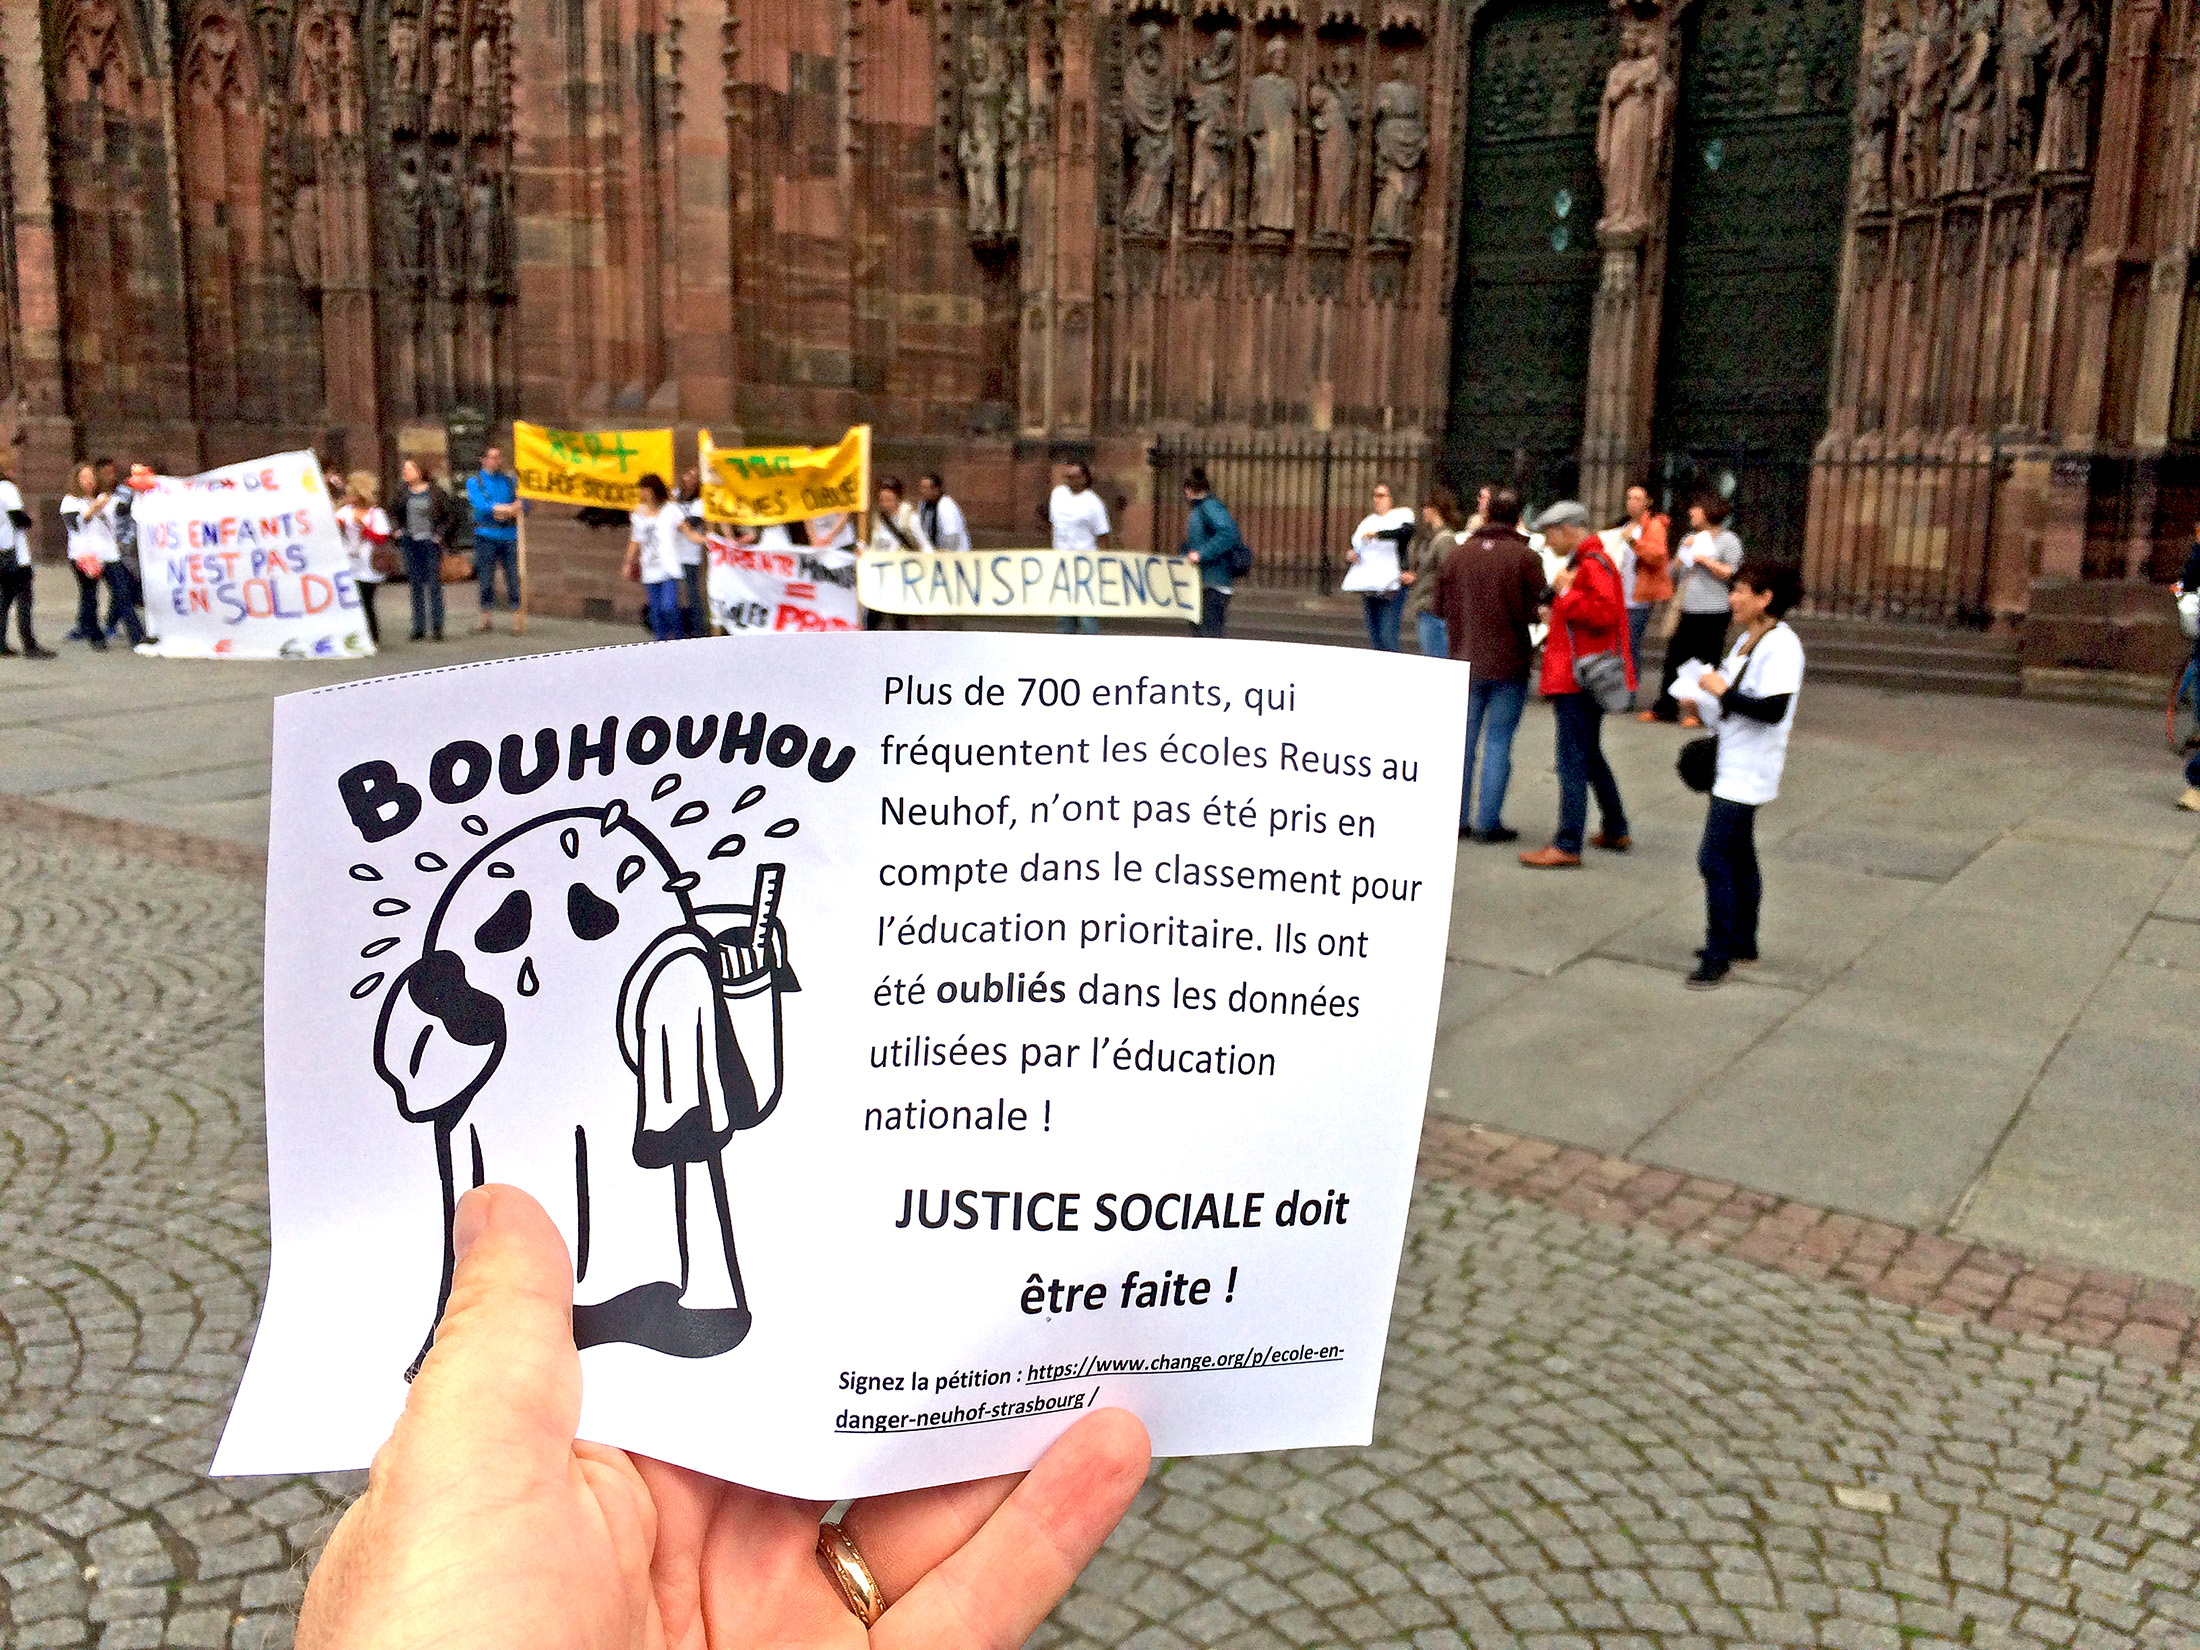 DE
ENFANTS
N'EST PAS
EN SOLDE
€ € € €
REP+
NEUHOF
700
TRANSPARENCE
=
BOUHOUHOU
Plus de 700 enfants, qui
fréquentent les écoles Reuss au
Neuhof, n'ont pas été pris en
compte dans le classement pour
l'éducation prioritaire. Ils ont
été oubliés dans les données
utilisées par l'éducation
nationale !
JUSTICE SOCIALE doit
être faite !
Signez la pétition : https://www.change.org/p/ecole-en-
danger-neuhof-strasbourg /